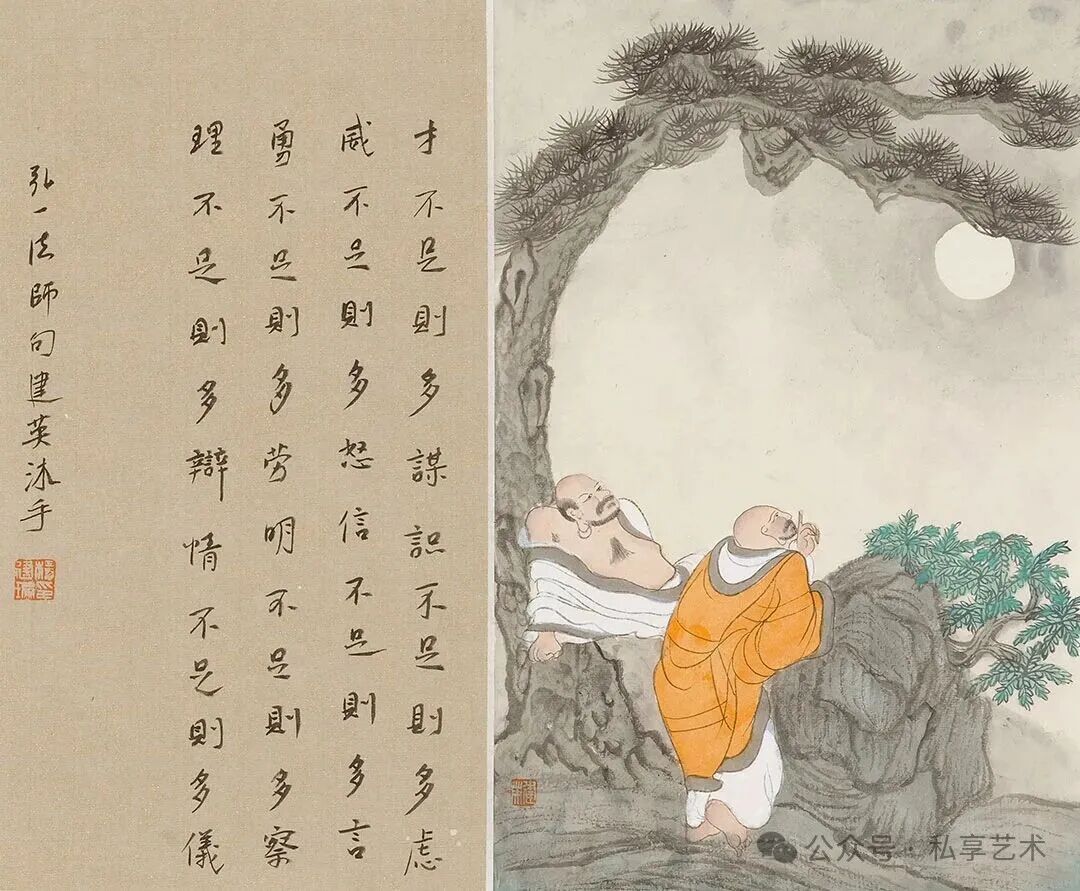 才不足則多謀識不足則多虑
威不足則多怒信不足則多言
勇不足則多劳明不足則多察
理不足則多辯情不足則多儀
弘一法師句建英沐手
公众号·私享艺术